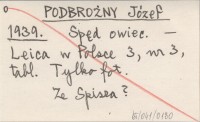 PODBROŻNY Józef
1939. Spęd owiec. -
Leica w Polsce 3, nr 3,
tabl. Tylko fot.
Ze Spisza?